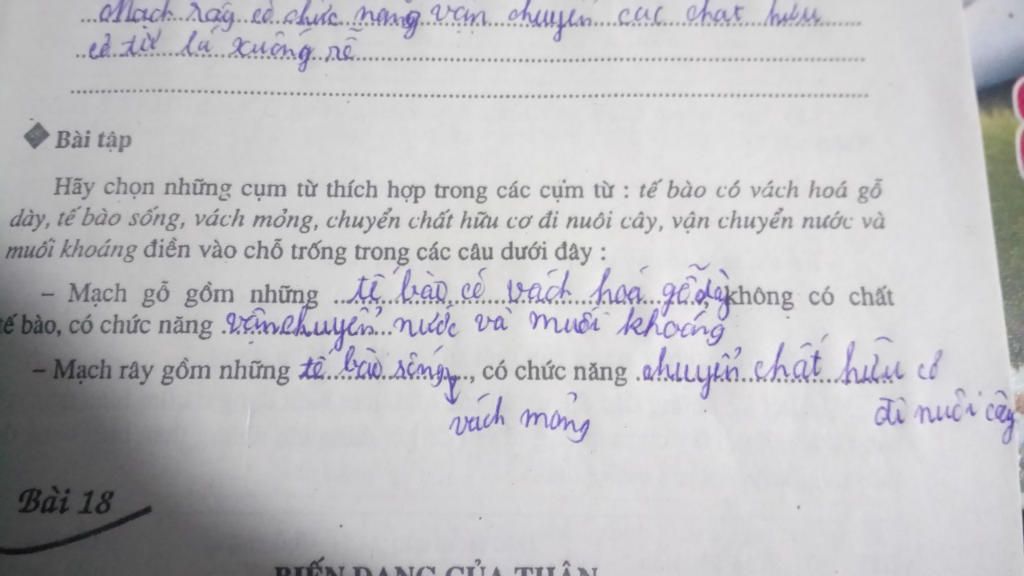 Mạch rây có chức năng vận chuyển các chất hữu
cơ từ lá xuống rễ
Bài tập
Hãy chọn những cụm từ thích hợp trong các cụm từ : tế bào có vách hoá gỗ
dày, tế bào sống, vách mỏng, chuyển chất hữu cơ đi nuôi cây, vận chuyển nước và
muối khoáng điền vào chỗ trống trong các câu dưới đây :
– Mạch gỗ gồm những tế bào có vách hoá gỗ dày không có chất
tế bào, có chức năng vận chuyển nước và muối khoáng
– Mạch rây gồm những tế bào sống, có chức năng chuyển chất hữu cơ
vách mỏng đi nuôi cây
Bài 18
BIẾN DẠNG CỦA THÂN